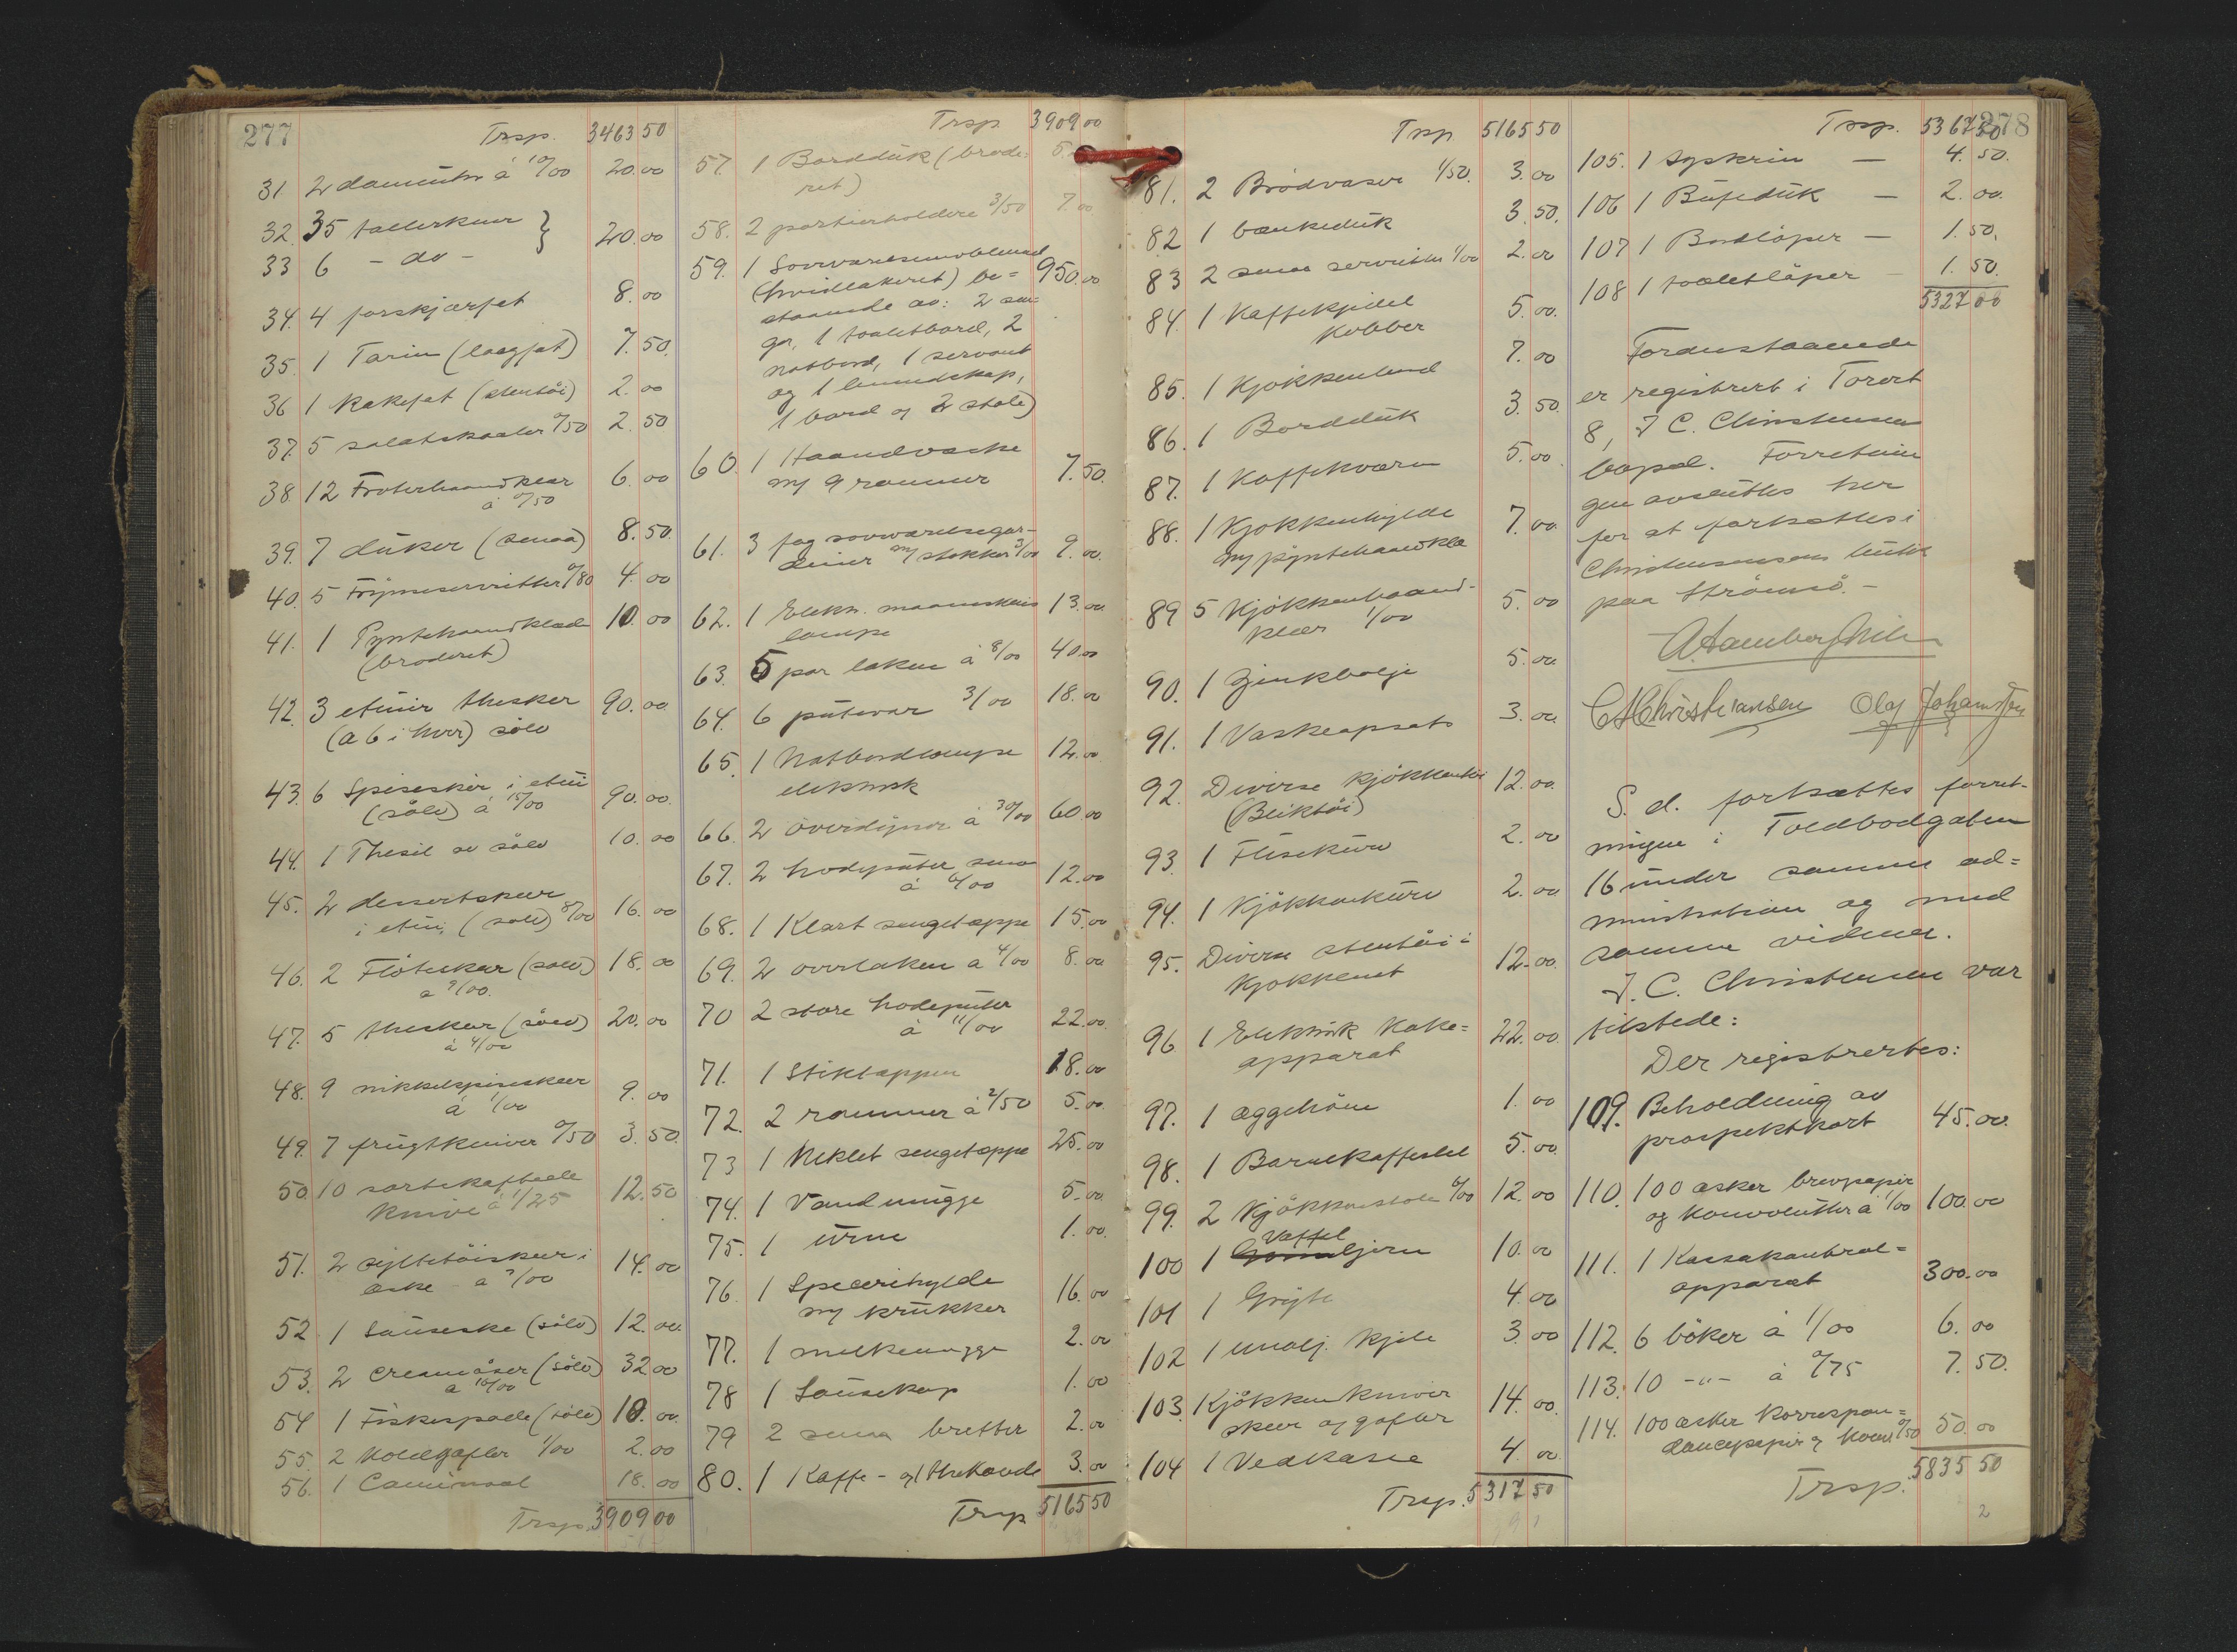 277
Trsp. 3463 50
31 2 à 10/00 20.00
32. 35 tallerkner } 20.00
33 6 - do -
34. 4 forskjærsæt 8.00
35. 1 Tarin (laagfat) 7.50
36 1 kakefat (stentöi) 2.00
37. 5 salatskaaler 0/50 2.50
38 12 Froterhaandklær 6.00
à 0/50
39. 7 duker (smaa) 8.50
40. 5 0/80 4.00
41. 1 Pyntehaandklæde 10.00
(broderet)
42. 3 etuier theskeer 90.00
(a 6 i hver) sölv
43. 6 Spiseskeer i etui 90.00
(sölv) à 15/00
44. 1 Thesil av sölv 10.00
45. 2 dessertskeer 16.00
i etui (sölv) 8/00
46. 2 Flöteskeer (sölv) 18.00
a 9/00.
47. 5 theskeer (sölv) 20.00
à 4/00
48. 9 nikkelspiseskeer 9.00
à 1/00
49. 7 frugtkniver 0/50 3.50
50. 10 sorteskaftede 12.50
knive à 1/25
51. 2 syltetöiskeer i 14.00
æske a 7/00
52. 1 Sauseske (sölv) 12.00
53. 2 (sölv) 32.00
a 16/00
54 1 Fiskespade (sölv) 10.00
55. 2 Koldgafler 1/00 2.00
56. 1 18.00
Trsp. 3909 00
Trsp. 3909 00
57. 1 Bordduk (brode-
ret)
58. 2 portierholdere 3/50 7.00
59. 1 Soveværelsesmöblement 950.00
(hvidlakeret) be=
staaende av: 2 sen=
ger, 1 toaletbord, 2
natbord, 1 servant
og 1 linnedskap,
1 bord og 2 stole)
60. 1 Haandvæske 7.50
m/ 9 rammer
61. 3 fag soveværelsegar- 9.00
diner m/ stokker 3/00
62. 1 Elektr. maaneskins 13.00
lampe
63. 5 par laken à 8/00 40.00
64. 6 putevar 3/00 18.00
65. 1 Natbordlampe 12.00
elektrisk
66. 2 overdyner à 30/00 60.00
67. 2 hodeputer smaa 12.00
à 6/00
68. 1 Klart sengetæppe 15.00
69. 2 overlaken a 4/00 8.00
70 2 store hodeputer 22.00
à 11/00
71. 1 Stiktæppe 18.00
72. 2 rammer à 2/50 5.00
73 1 Heklet sengetæppe 25.00
74. 1 Vandmugge 5.00
75. 1 urne 1.00
76. 1 Specerihylde 16.00
m/ krukker
77. 1 melkemugge 2.00
78 1 Sausekop 1.00
79 2 smaa bretter 2.00
80. 1 Kaffe- og 1 thekande 3.00
Trsp 5165 50
Trsp 5165 50
81. 2 Brödvaser 1/50. 3.00
82 1 bænkeduk 3.50.
83 2 smaa servietter 1/00 2.00
84. 1 Kaffekjedel 5.00.
Kobber
85. 1 Kjökkenbord 7.00
86. 1 Bordduk 3.50.
87. 1 Kaffekværn 5.00
88. 1 Kjökkenhylde 7.00
m/ pyntehaandklæ
89 5 Kjökkenhaand- 5.00
klær 1/00
90. 1 Zinkbalje 5.00
91. 1 Vaskeopsats 3.00
92. Diverse kjökkentöi 12.00
(Bliktöi)
93. 1 Flisekurv 2.00
94. 1 Kjökkenkurv 2.00
95. Diverse stentöi i 12.00.
Kjökkenet
96. 1 Elektrisk Koke= 22.00.
apparat
97. 1 æggehöne 1.00
98. 1 Barnekaffestel 5.00
99. 2 Kjökkenstole 6/00 12.00
100 1 Vaffeljern 10.00
101 1 Gryte 4.00
102 1 emalj. kjele 3.00
103. Kjökkenkniver 14.00.
skeer og gafler
104 1 Vedkasse 4.00.
Trsp. 5317 50
278
Trsp. 5367 50
105. 1 syskrin — 4.50.
106 1 Buffeduk — 2.00.
107 1 Bordlöper — 1.50.
108 1 toaletlöper — 1.50.
5327 00
Fordenstaaende
er registrert i Torvet
8, J C. Christensens
bopæl. Forretnin
gen avsluttes her
for at fortsættes i
Christensens butik
paa Strömsö. -
CAChristiansen Olaf Johansen
S. d. fortsættes forret-
ningen i Toldbodgaten
16 under samme ad=
ministration og med
samme vidner.
J. C. Christensen var
tilstede:
Der registrertes:
109. Beholdning av 45.00.
prospektkort
110. 100 æsker brevpapir 100.00
og konvolutter à 1/00
111. 1 Kassakontrol= 300.00
apparat
112. 6 böker à 1/00 6.00
113. 10 -"- à 0/75 7.50.
114. 100 æsker korrespon= 50.00
dancepapir og konv. 0/50
5835 50
Trsp.
2